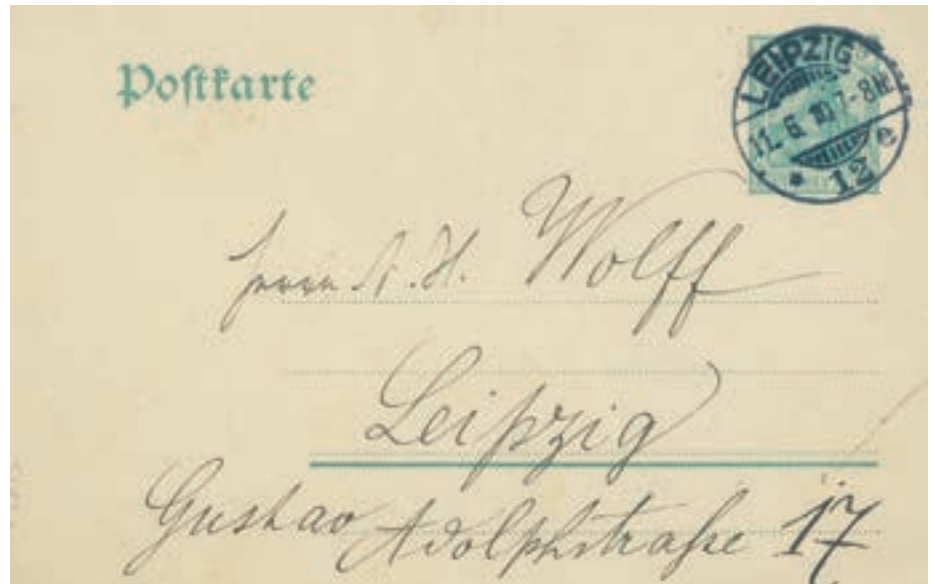 Postkarte
LEIPZIG
11. 6. 10. 7-8 N
* 12 e
Herrn A. H. Wolff
Leipzig
Gustav Adolphstraße 17